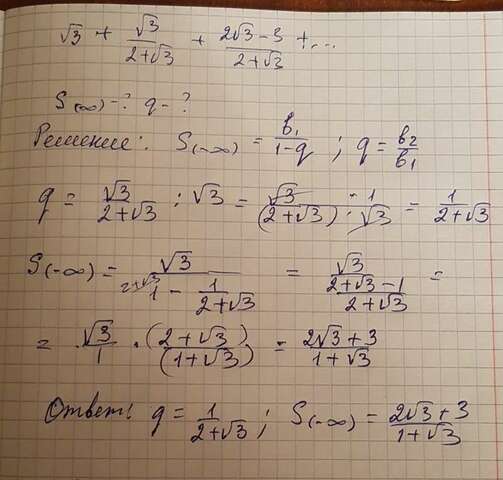 √3 + √3/(2+√3) + (2√3-3)/(2+√3) + ...
S(∞)-? q-?
Решение: S(-∞) = b₁/(1-q) ; q = b₂/b₁
q = √3/(2+√3) : √3 = (√3 · 1)/((2+√3) · √3) = 1/(2+√3)
S(-∞) = √3/(1 - 1/(2+√3)) = √3/((2+√3-1)/(2+√3)) =
= √3/1 · (2+√3)/(1+√3) = (2√3+3)/(1+√3)
Ответ: q = 1/(2+√3) ; S(-∞) = (2√3+3)/(1+√3)